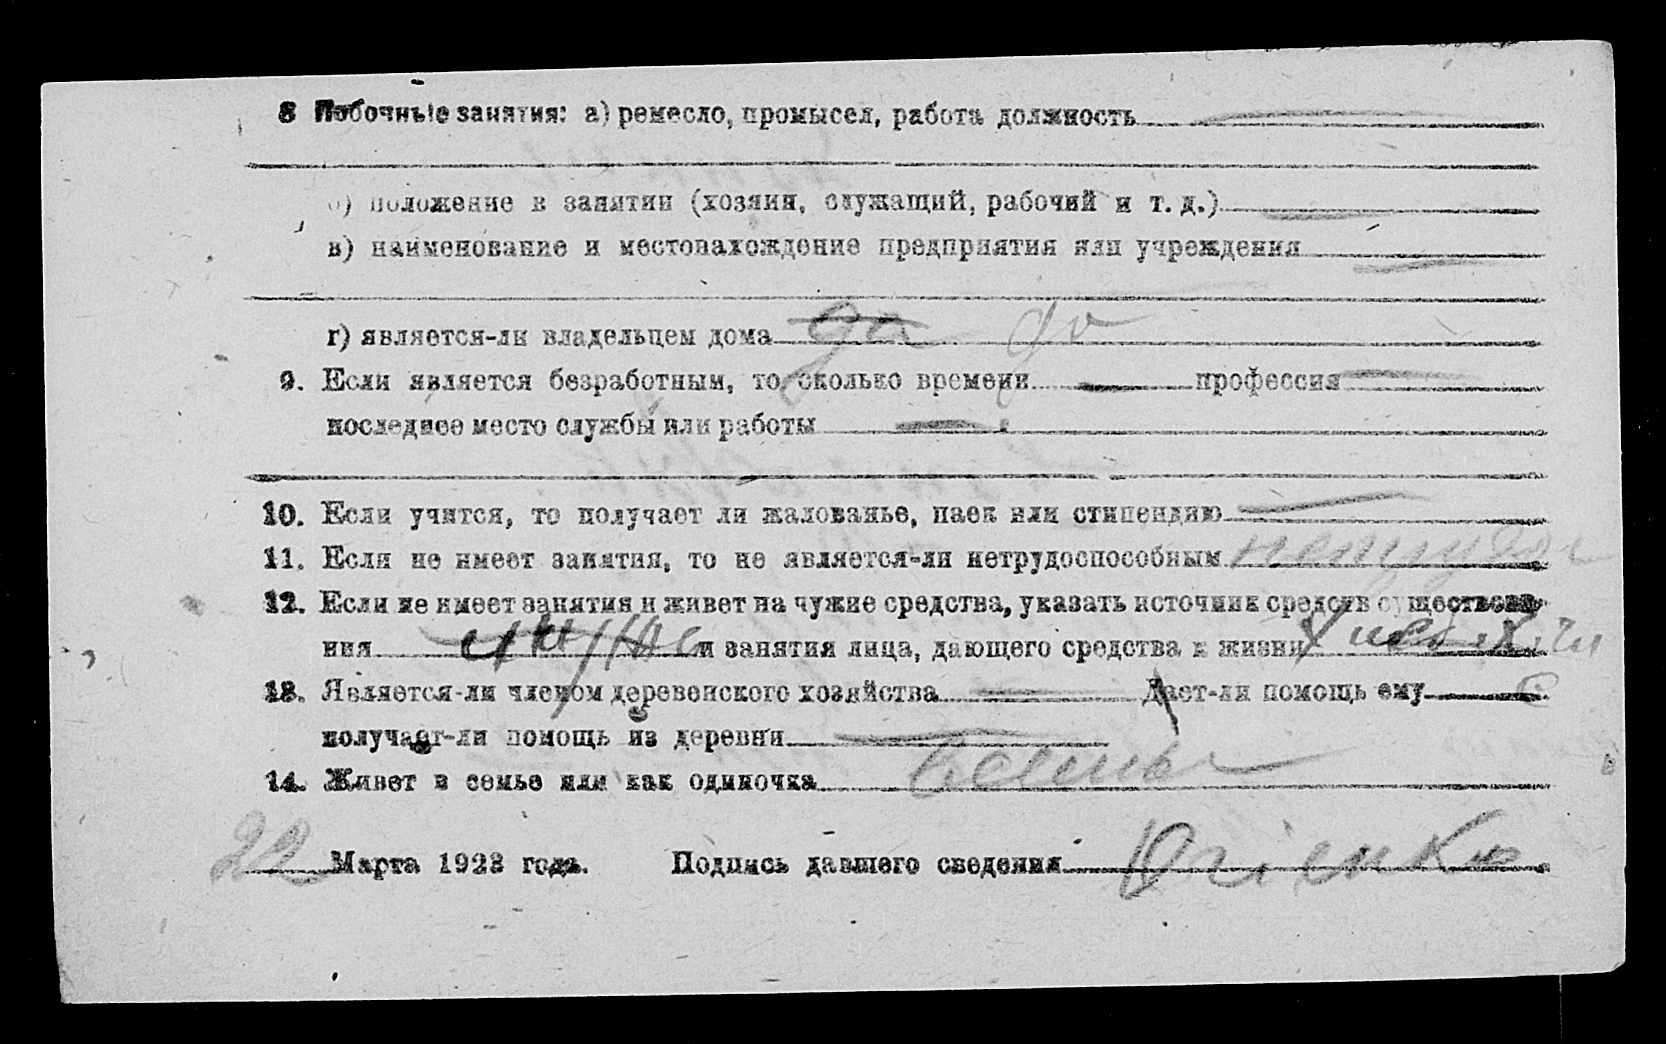 8 Побочные занятия: а) ремесло, промысел, работа должность
б) положение в занятии (хозяин, служащий, рабочий и т. д.)
в) наименование и местонахождение предприятия или учреждения
г) является-ли владельцем дома да да
9. Если является безработным, то сколько времени профессия
последнее место службы или работы
10. Если учится, то получает ли жалованье, паек или стипендию
11. Если не имеет занятия, то не является-ли нетрудоспособным
12. Если не имеет занятия и живет на чужие средства, указать источник средств существова-
ния и занятия лица, дающего средства к жизни
13. Является-ли членом деревенского хозяйства Дает-ли помощь ему
получает-ли помощь из деревни
14. Живет в семье или как одиночка семье
22 Марта 1923 года. Подпись давшего сведения